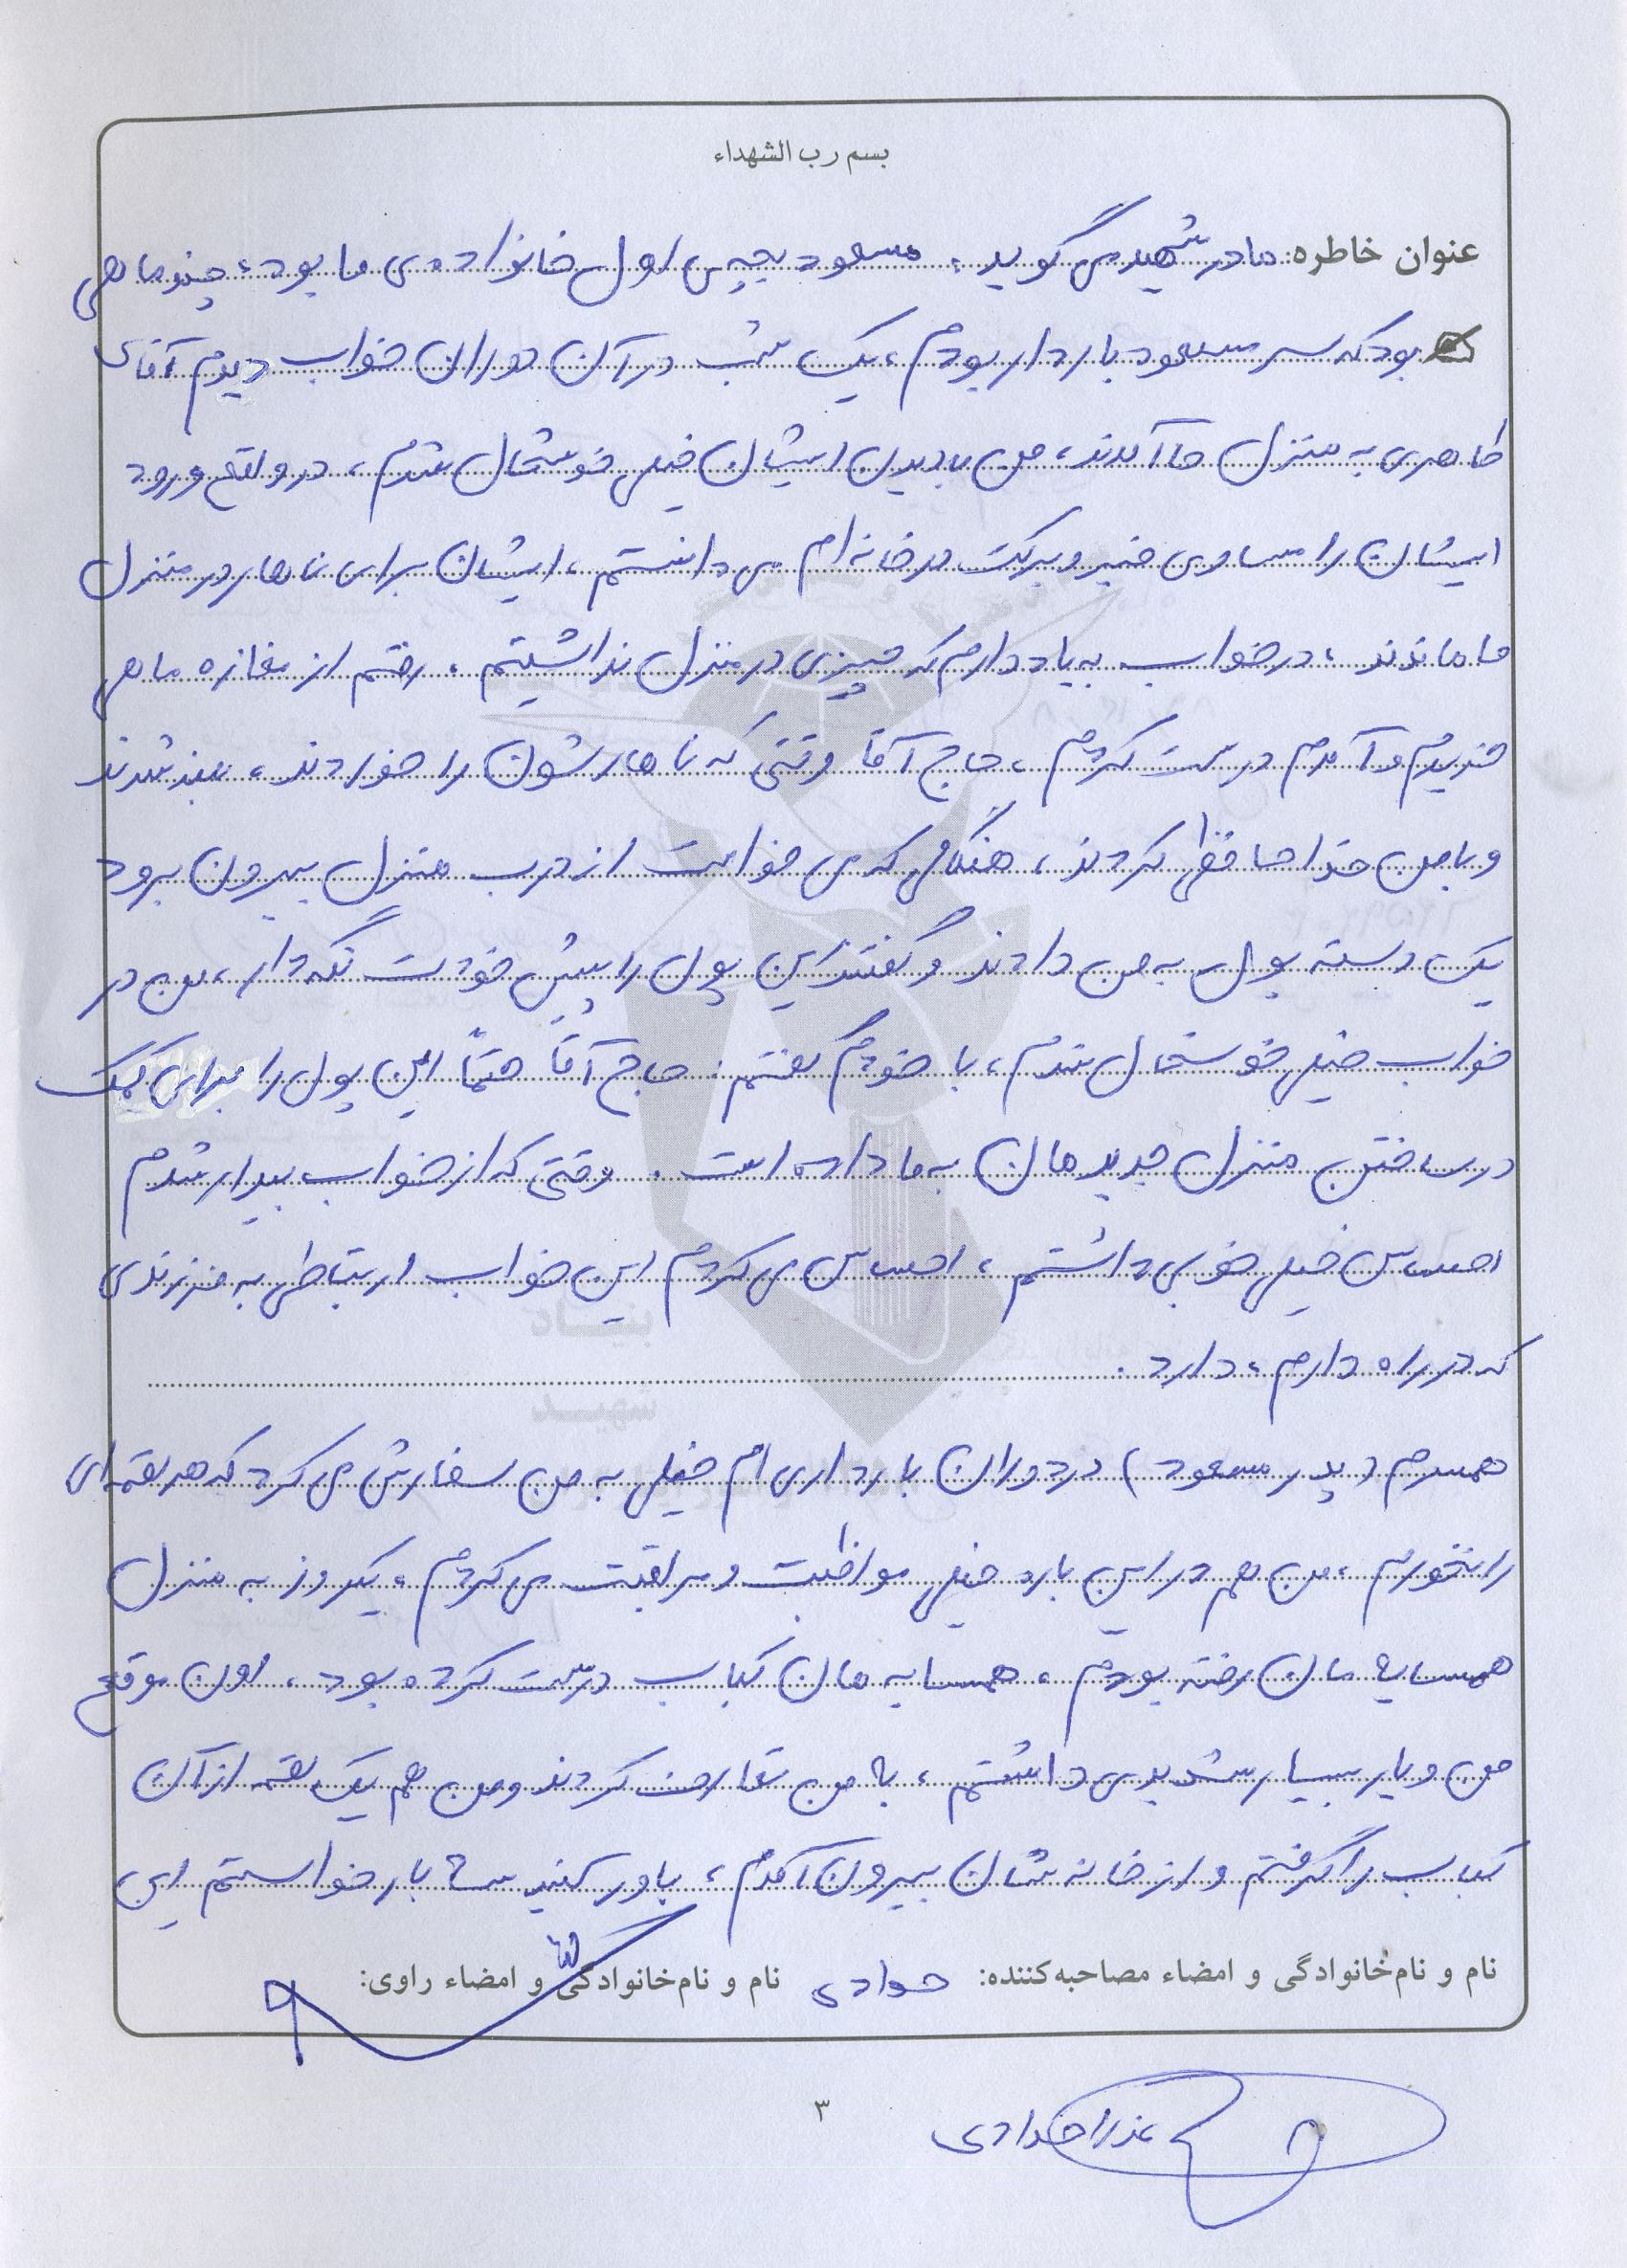 بسم رب الشهداء
عنوان خاطره: مادر شهید می گوید، مسعود بچه ی اول خانواده ی ما بود، چند ماهی
بود که سر مسعود باردار بودم، یک شب در آن دوران خواب دیدم آقای
طاهری به منزل ما آمدند، من با دیدن ایشان خیلی خوشحال شدم، در واقع ورود
ایشان را مساوی خیر و برکت در خانه ام می دانستم، ایشان برای ناهار در منزل
ما ماندند، در خواب به یاد دارم که چیزی در منزل نداشتیم، رفتم از مغازه ماهی
خریدم و آمدم درست کردم، حاج آقا وقتی که ناهارشون را خوردند، بلند شدند
و با من خداحافظی کردند، هنگامی که می خواست از درب منزل بیرون برود
یک دسته پول به من دادند و گفتند این پول را پیش خودت نگه دار، من در
خواب خیلی خوشحال شدم، با خودم گفتم: حاج آقا حتماً این پول را برای کمک
در ساختن منزل جدیدمان به ما داده است. وقتی که از خواب بیدار شدم
احساس خیلی خوبی داشتم، احساس می کردم این خواب ارتباطی به فرزندی
که در راه دارم، دارد.
همسرم (پدر مسعود) در دوران بارداری ام خیلی به من سفارش می کرد که هر لقمه ای
را نخورم، من هم در این باره خیلی مواظبت و مراقبت می کردم، یکروز به منزل
همسایه مان رفته بودم، همسایه مان کباب درست کرده بود، اون موقع
من ویار بسیار شدیدی داشتم، به من تعارف کردند و من هم یک لقمه از آن
کباب را گرفتم و از خانه شان بیرون آمدم، باور کنید سه بار خواستم این
نام و نام‌خانوادگی و امضاء مصاحبه‌کننده: حدادی نام و نام‌خانوادگی و امضاء راوی:
۳
عذرا حدادی
بنیاد
شهید